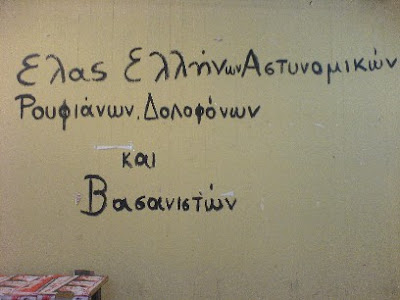 Ελας ΕλλήνωνΑστυνομικών
Ρουφιάνων, Δολοφόνων
και
Βασανιστών